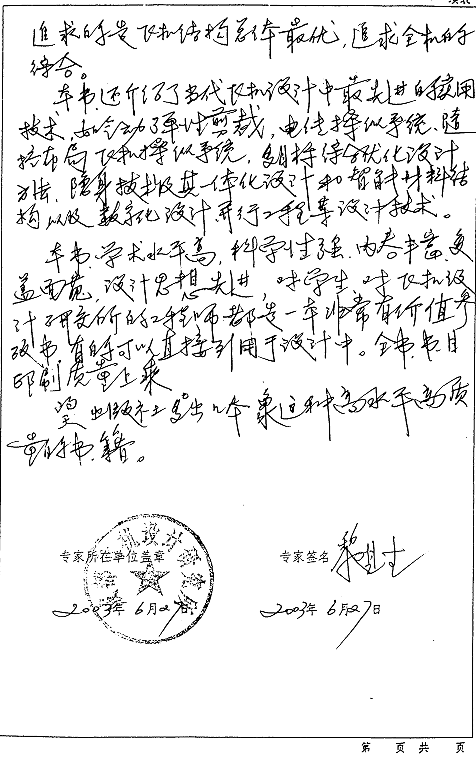 追求的是飞机结构总体最优，追求全机的
综合。
本书还介绍了当代飞机设计中最先进的实用
技术，如气动弹性剪裁，电传操纵系统、随
控布局飞机操纵系统，多目标综合优化设计
方法，隐身技术及其一体化设计和智能材料结
构以及数字化设计、并行工程等设计技术。
本书学术水平高，科学性强、内容丰富、复
盖面宽，设计思想先进，对学生、对飞机设
计研究所的工程师都是一本非常有价值参
考书，有的可以直接引用于设计中。全书书目
印刷质量上乘
望出版社多出几本象这种高水平高质
量的书籍。
专家所在单位盖章
专家签名
2003年6月27日
2003年6月27日
第 页 共 页